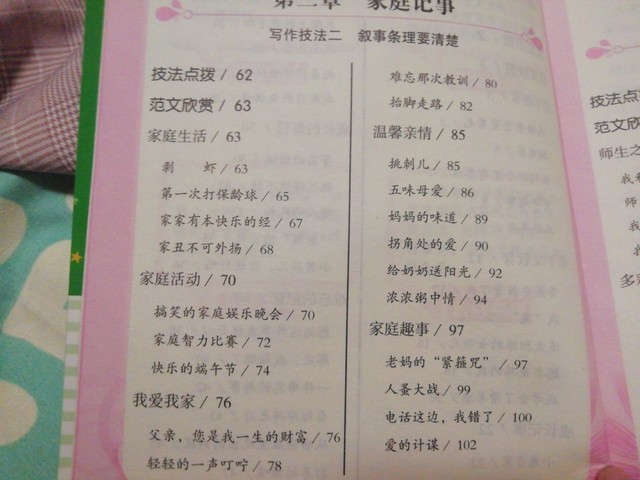 第二章 家庭记事
写作技法二 叙事条理要清楚
技法点拨 / 62
范文欣赏 / 63
家庭生活 / 63
剥 虾 / 63
第一次打保龄球 / 65
家家有本快乐的经 / 67
家丑不可外扬 / 68
家庭活动 / 70
搞笑的家庭娱乐晚会 / 70
家庭智力比赛 / 72
快乐的端午节 / 74
我爱我家 / 76
父亲，您是我一生的财富 / 76
轻轻的一声叮咛 / 78
难忘那次教训 / 80
抬脚走路 / 82
温馨亲情 / 85
挑刺儿 / 85
五味母爱 / 86
妈妈的味道 / 89
拐角处的爱 / 90
给奶奶送阳光 / 92
浓浓粥中情 / 94
家庭趣事 / 97
老妈的“紧箍咒” / 97
人蚤大战 / 99
电话这边，我错了 / 100
爱的计谋 / 102
技法点
范文欣
师生之
我
师
我
多